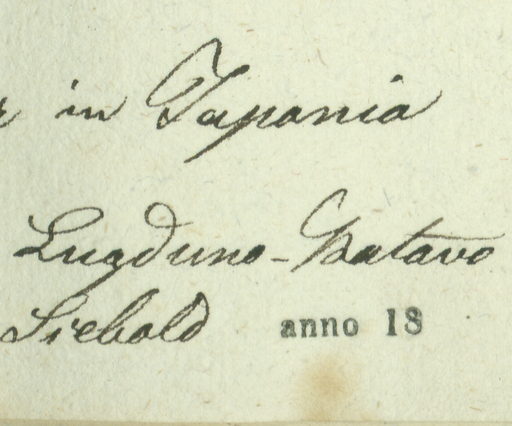 in Japonia
Lugduno-Batavo
Siebold anno 18